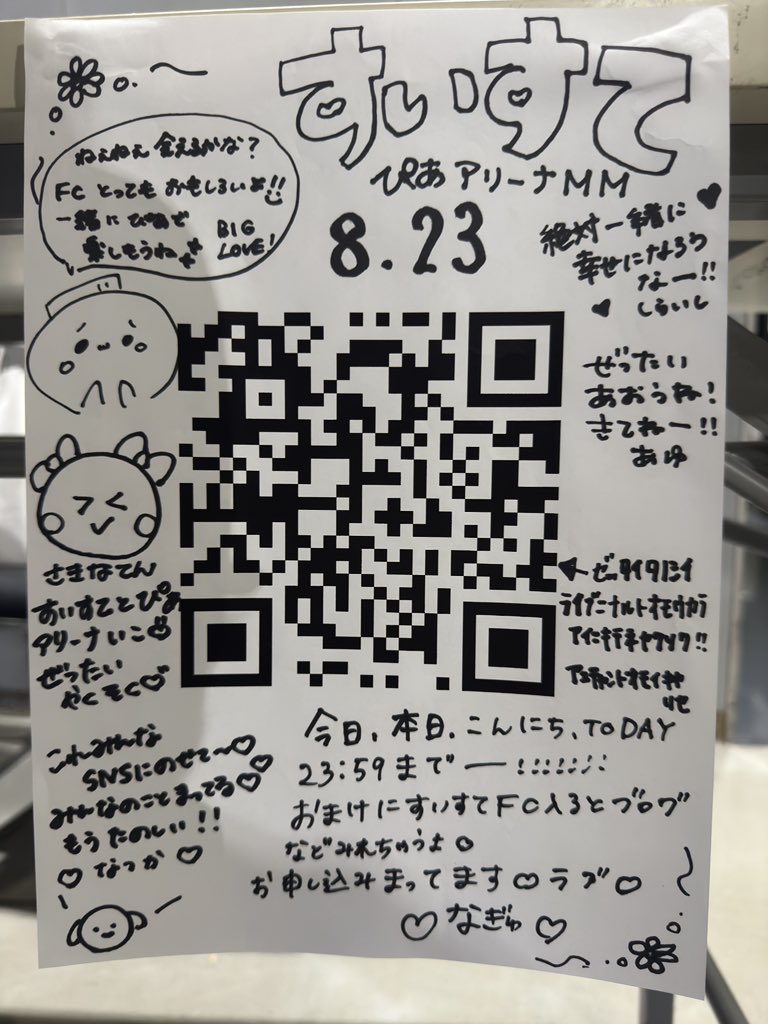 すいすて
ぴあアリーナMM
8.23
ねぇねぇ 会えるかな?
FC とっても おもしろいよ!!
一緒に ぴあで
楽しもうね
BIG
LOVE!
絶対一緒に
幸せになろう
なー!!
しらいし
ぜったい
あおうね!
きてねー!!
あゆ
さきなてん
すいすてとぴあ
アリーナいこ
ぜったい
やくそく♡
ゼッタイタノシイ
ライブニナルトオモウカラ
これみんな
SNSにのせて〜♡
みんなのことまってる♡
もうたのしい!!
♡なつか♡
今日、本日、こんにち、TODAY
23:59まで
おまけにすいすてFC入るとブログ
などみれちゃうよ
お申し込みまってます♡ラブ♡
♡なぎゅ♡